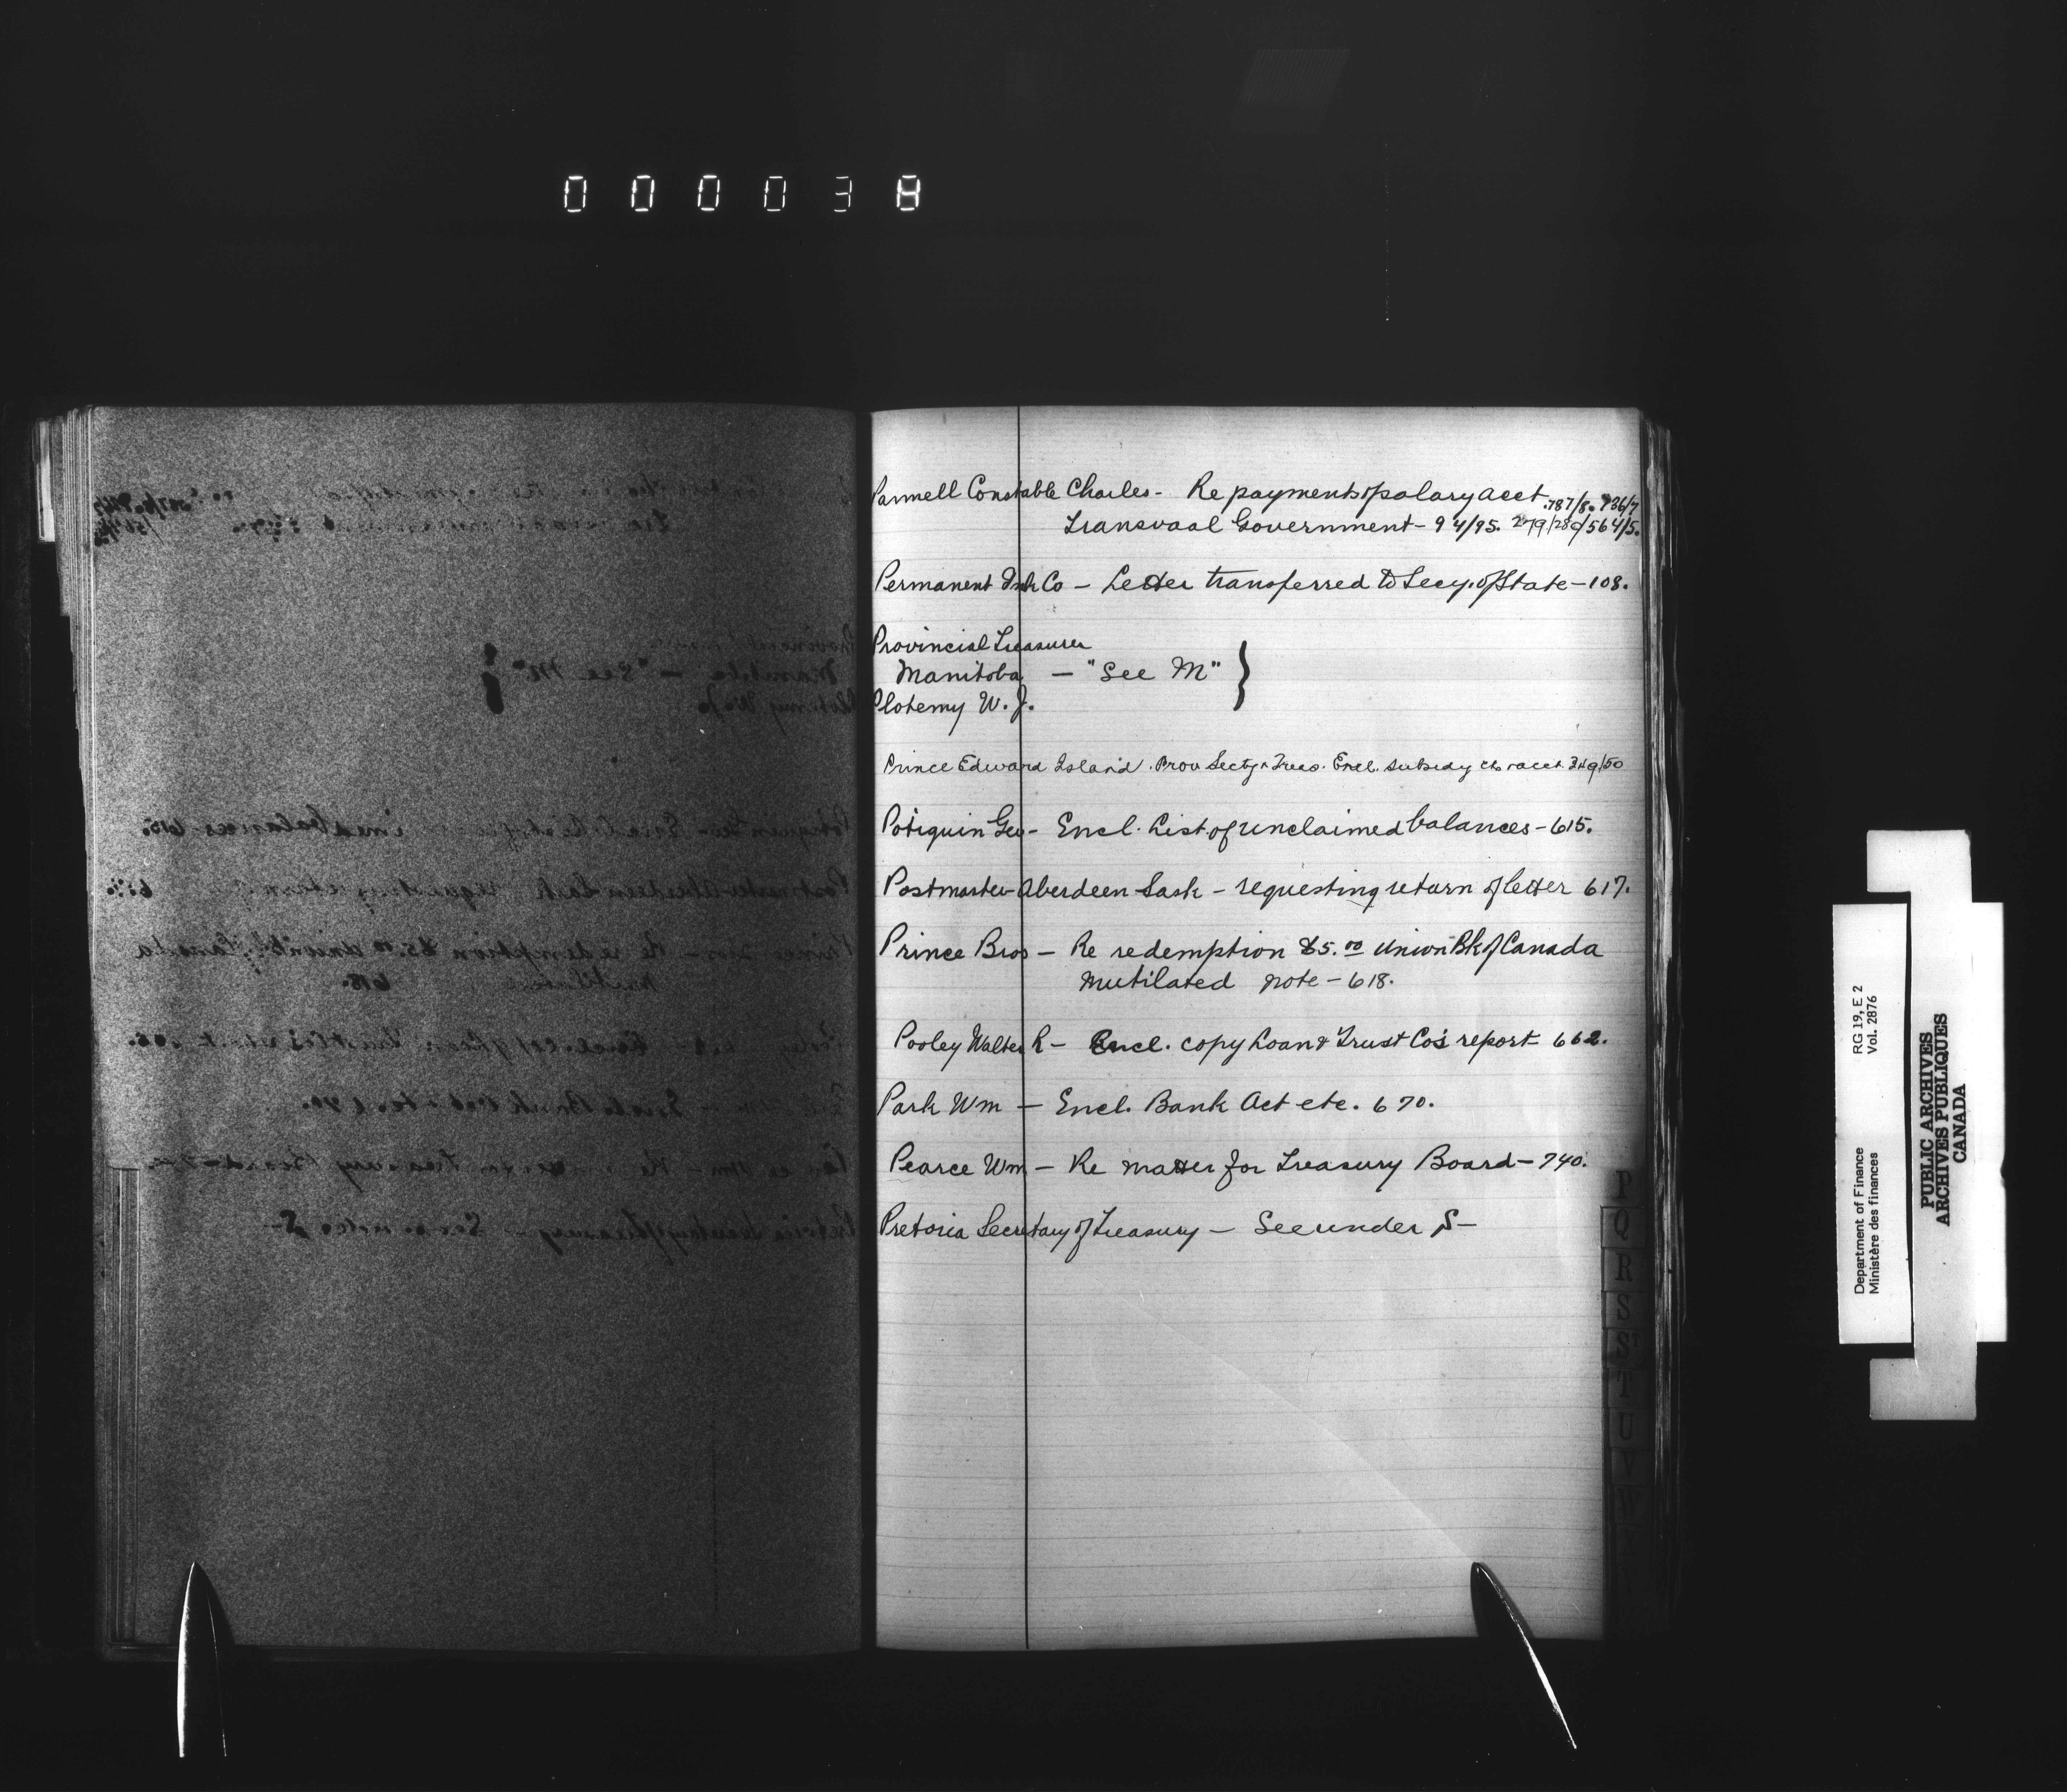 000038
Parmell Constable Charles - Re payments of salary acct .787/8. 736/7
Transvaal Government - 94/95. 279/280/564/5.
Permanent Co - Letter transferred to Secy. of State - 108.
Provincial Treasurer
Manitoba - "See M" }
Plotemy W. J.
Prince Edward Island. Prov Secty & Treas. Encl. subsidy acct. 349/50
Potiquin Geo - Encl. List of unclaimed balances - 615.
Postmaster Aberdeen Sask - requesting return of letter 617.
Prince Bros - Re redemption $5.00 Union Bk of Canada
Mutilated note - 618.
Pooley Walter R - Encl. copy Loan & Trust Co's report 662.
Park Wm - Encl. Bank Act etc. 670.
Pearce Wm - Re matter for Treasury Board - 740.
Pretoria Secretary of Treasury - See under S -
P
Q
R
S
S
T
U
V
W
X
Department of Finance RG 19, E 2
Ministère des finances Vol. 2876
PUBLIC ARCHIVES
ARCHIVES PUBLIQUES
CANADA